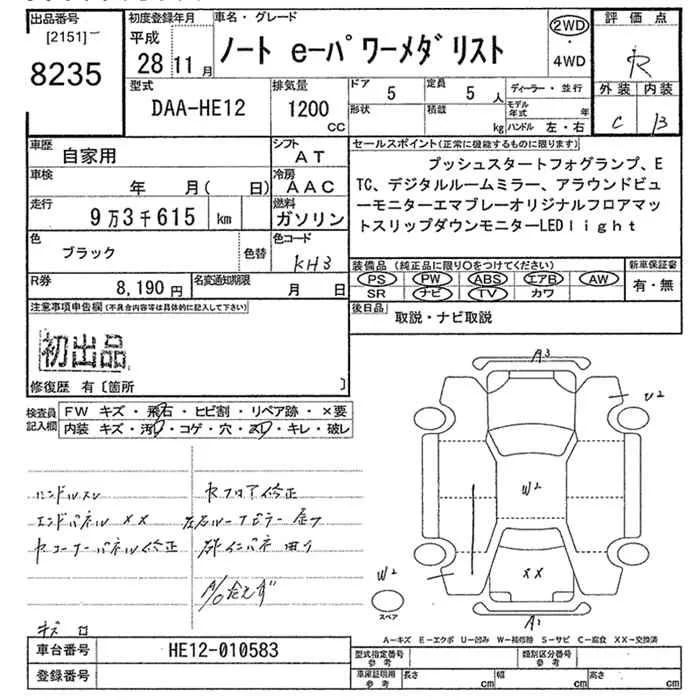 出品番号
[2151]
8235
初度登録年月
平成
28 11月
車名・グレード
ノート e-パワーメダリスト
2WD
・
4WD
評価点
R
外装 内装
C B
型式
DAA-HE12
排気量
1200
CC
ドア
5
定員
5 人
形状
積載
kg
ディーラー・並行
モデル年式 年
ハンドル 左・右
車歴
自家用
シフト
AT
車検
年 月( 日)
冷房
AAC
走行
9万3千615 km
燃料
ガソリン
色
ブラック
色替
色コード
KH3
R券
8,190円
名変通知期限
月 日
セールスポイント(正常に機能するものに限ります)
プッシュスタートフォグランプ、E
TC、デジタルルームミラー、アラウンドビュ
ーモニターエマブレーオリジナルフロアマッ
トスリップダウンモニターLEDlight
装備品 (純正品に限り○をつけてください)
新車保証書
PS PW ABS エアB AW
SR ナビ TV カワ
有・無
後日品
取説・ナビ取説
注意事項申告欄(不具合内容等は具体的に記入して下さい)
初出品
修復歴 有〔箇所 〕
検査員
記入欄
FW キズ・飛石・ヒビ割・リペア跡・×要
内装 キズ・汚れ・コゲ・穴・スレ・キレ・破レ
ハンドルスレ
セフロア修正
エンドパネル ××
左右ルーフピラー
セコーナーパネル修正
曲り
A3
U2
W2
W2
××
A2
スペア
キズ
A-キズ E-エクボ U-凹み W-補修跡 S-サビ C-腐食 XX-交換済
車台番号
HE12-010583
登録番号
型式指定番号
参考
類別区分番号
参考
車庫証明用
参考
長さ cm
幅 cm
高さ cm